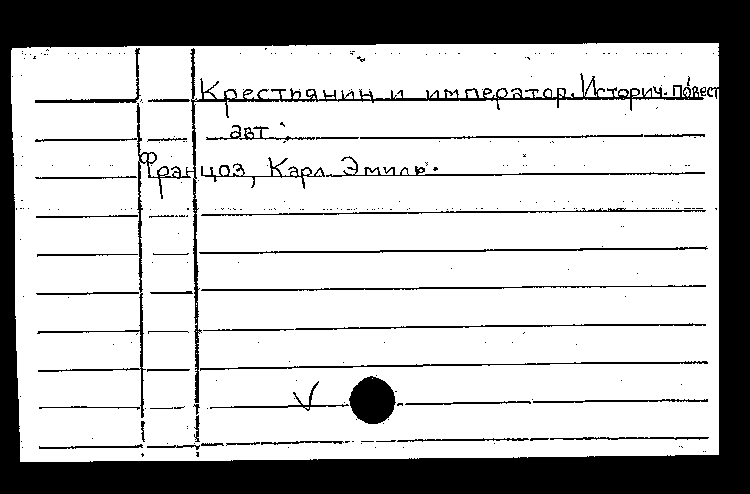 Крестьянин и император. Историч. повест
авт.:
Француз, Карл Эмиль.